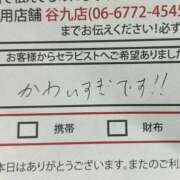 用店舗 谷九店(06-6772-4545
までお伝えください！必ず
お客様からセラピストへご希望ありました
かわいすぎです!!
□ 携帯 □ 財布
本日はありがとうございます。またのご利